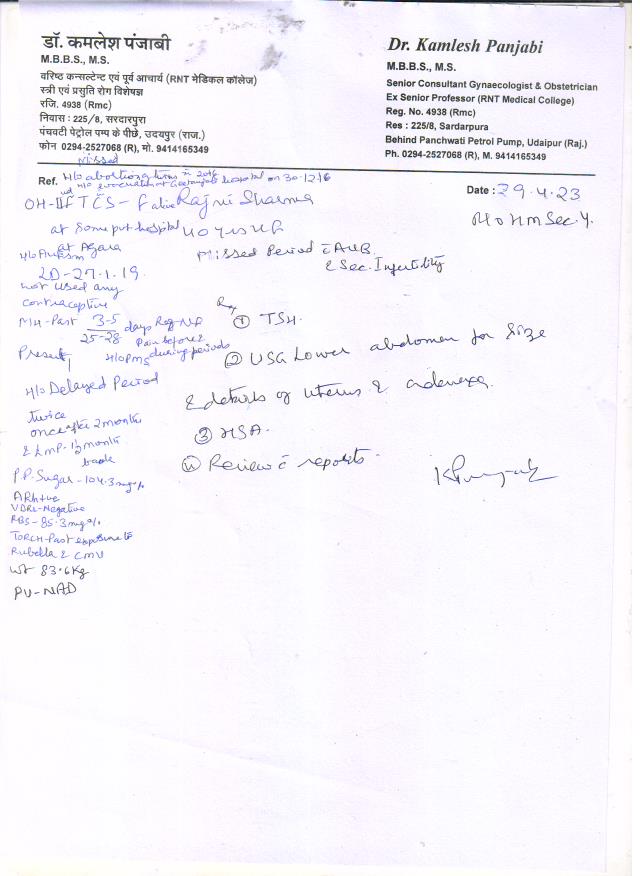 डॉ. कमलेश पंजाबी
M.B.B.S., M.S.
वरिष्ठ कन्सल्टेन्ट एवं पूर्व आचार्य (RNT मेडिकल कॉलेज)
स्त्री एवं प्रसुति रोग विशेषज्ञ
रजि. 4938 (Rmc)
निवास : 225/8, सरदारपुरा
पंचवटी पेट्रोल पम्प के पीछे, उदयपुर (राज.)
फोन 0294-2527068 (R), मो. 9414165349
Dr. Kamlesh Panjabi
M.B.B.S., M.S.
Senior Consultant Gynaecologist & Obstetrician
Ex Senior Professor (RNT Medical College)
Reg. No. 4938 (Rmc)
Res : 225/8, Sardarpura
Behind Panchwati Petrol Pump, Udaipur (Raj.)
Ph. 0294-2527068 (R), M. 9414165349
Missed
Ref. H/o abortion 2 times in 2016
H/o evacuation at hospital on 30-12-16
Date : 29.4.23
Rajni Sharma
at some pvt hospital
40 yrs
at Agara
H/o Autism
LD-27.1.19.
not used any
contraceptive
Missed Period c AUB
& Sec. Infertility
MH-Past 3-5 days Reg
25-28 Pain before &
during periods
Present H/o PMS
H/o Delayed Period
twice
once after 2 months
& LMP-1½ month
back
P.P. Sugar-104.3 mg%
A Rh+ve
VDRL-Negative
RBS-85.3 mg%
TORCH-Past exposure to
Rubella & CMV
Wt 83.6 Kg
PV-NAD
Rx
① TSH.
② USG Lower abdomen for size
& details of uterus & adenexa.
③ HSA.
④ Review c reports.